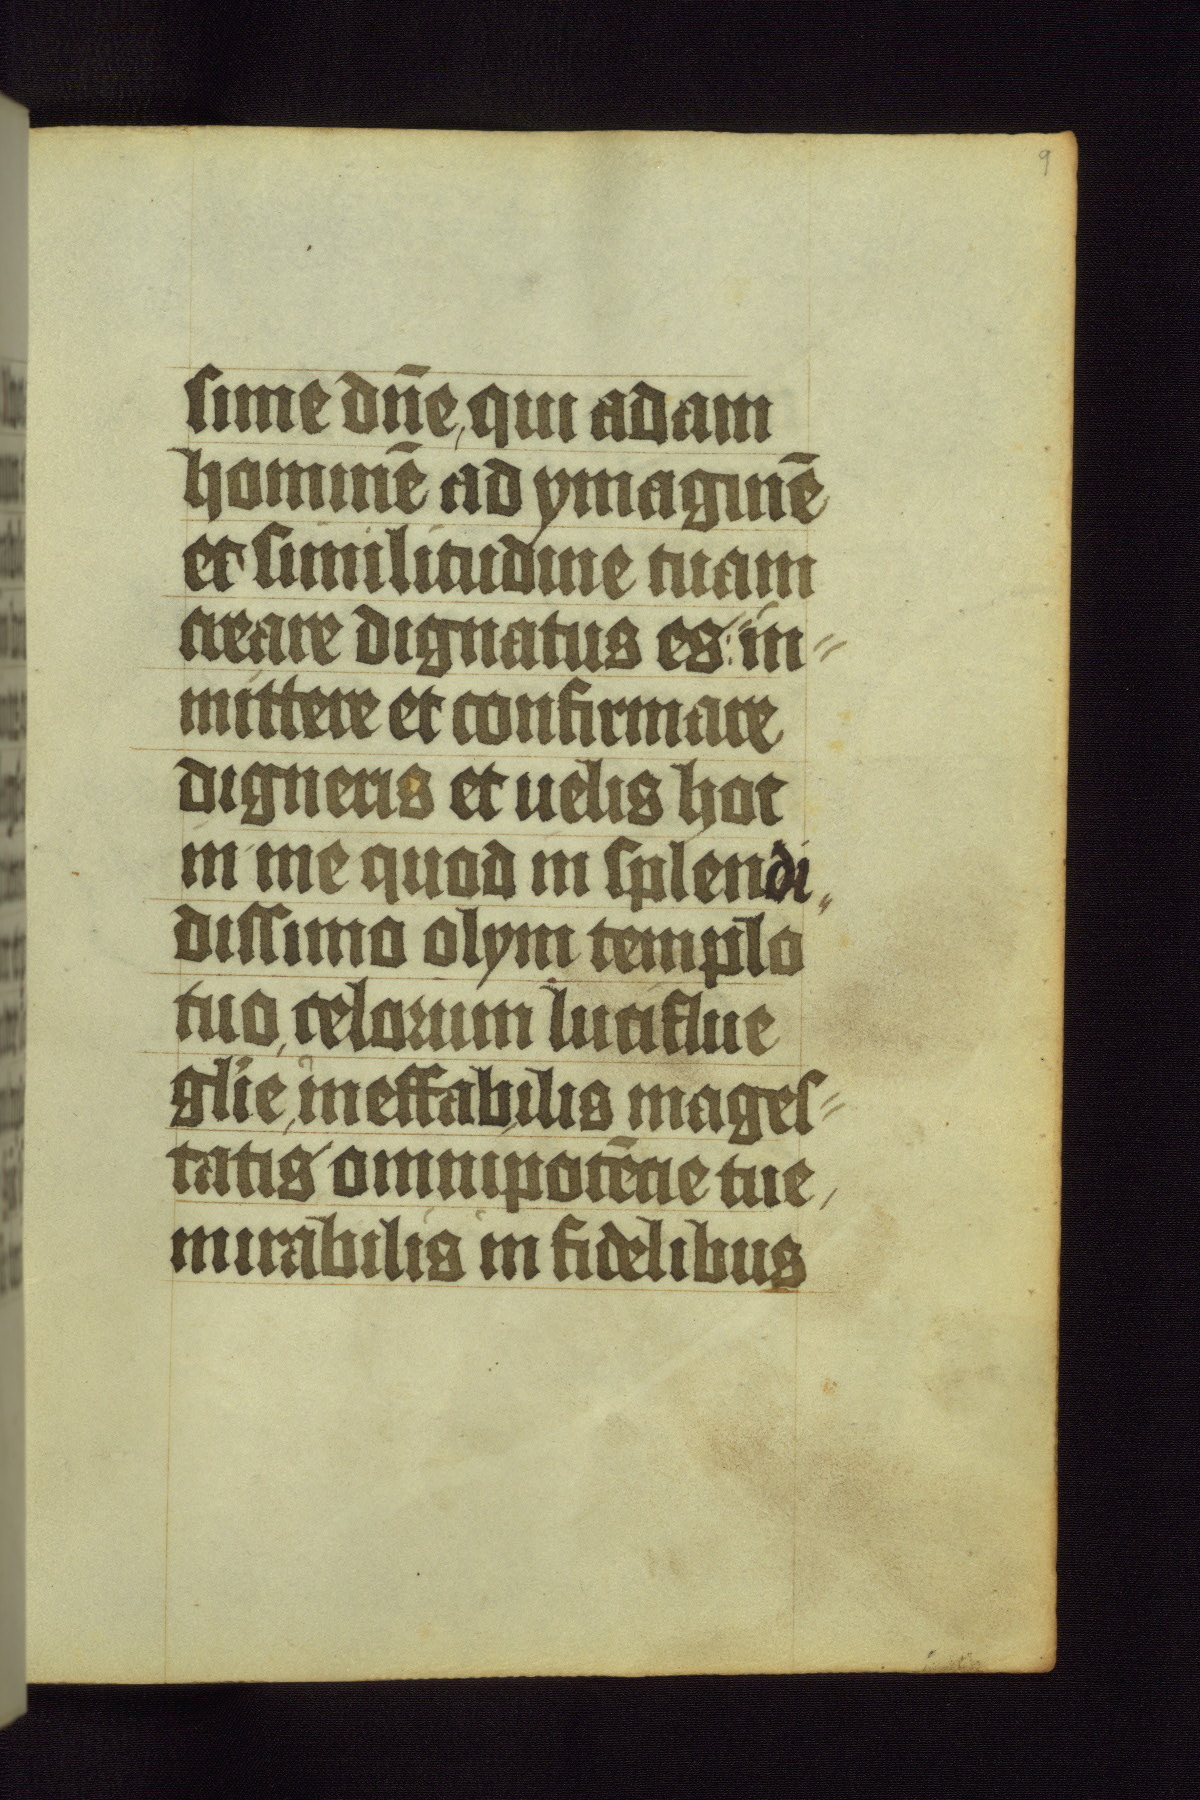 9
sime dñe, qui adam
hominē ad ymaginē
et similitudine tuam
creare dignatus es: in=
mittere et confirmare
digneris et uelis hoc
in me quod in splendi„
dissimo olym templo
tuo, celorum luciflue
glie, ineffabilis mages=
tatis omnipotēcie tue,
mirabilis in fidelibus